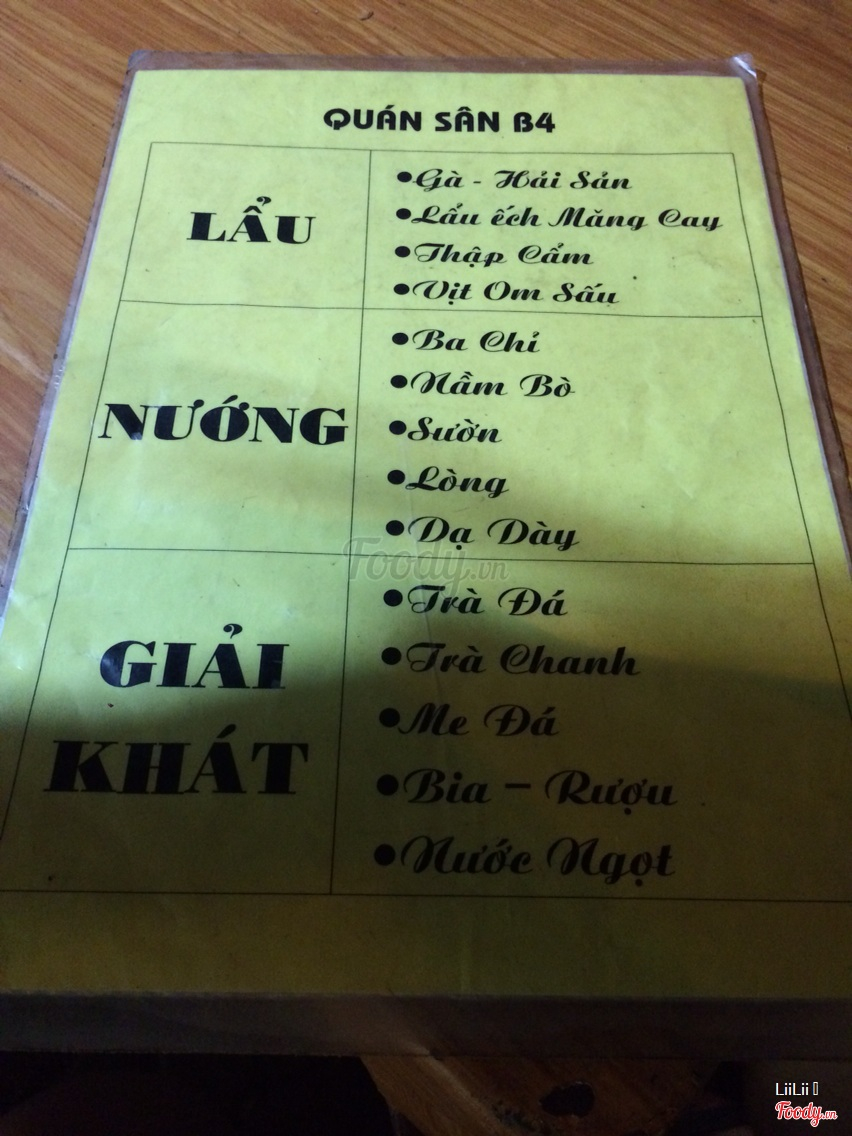 QUÁN SÂN B4
LẨU
•Gà - Hải Sản
•Lẩu ếch Măng Cay
•Thập Cẩm
•Vịt Om Sấu
NƯỚNG
•Ba Chỉ
•Nầm Bò
•Sườn
•Lòng
•Dạ Dày
Foody.vn
GIẢI
KHÁT
•Trà Đá
•Trà Chanh
•Me Đá
•Bia – Rượu
•Nước Ngọt
LiiLii
Foody.vn